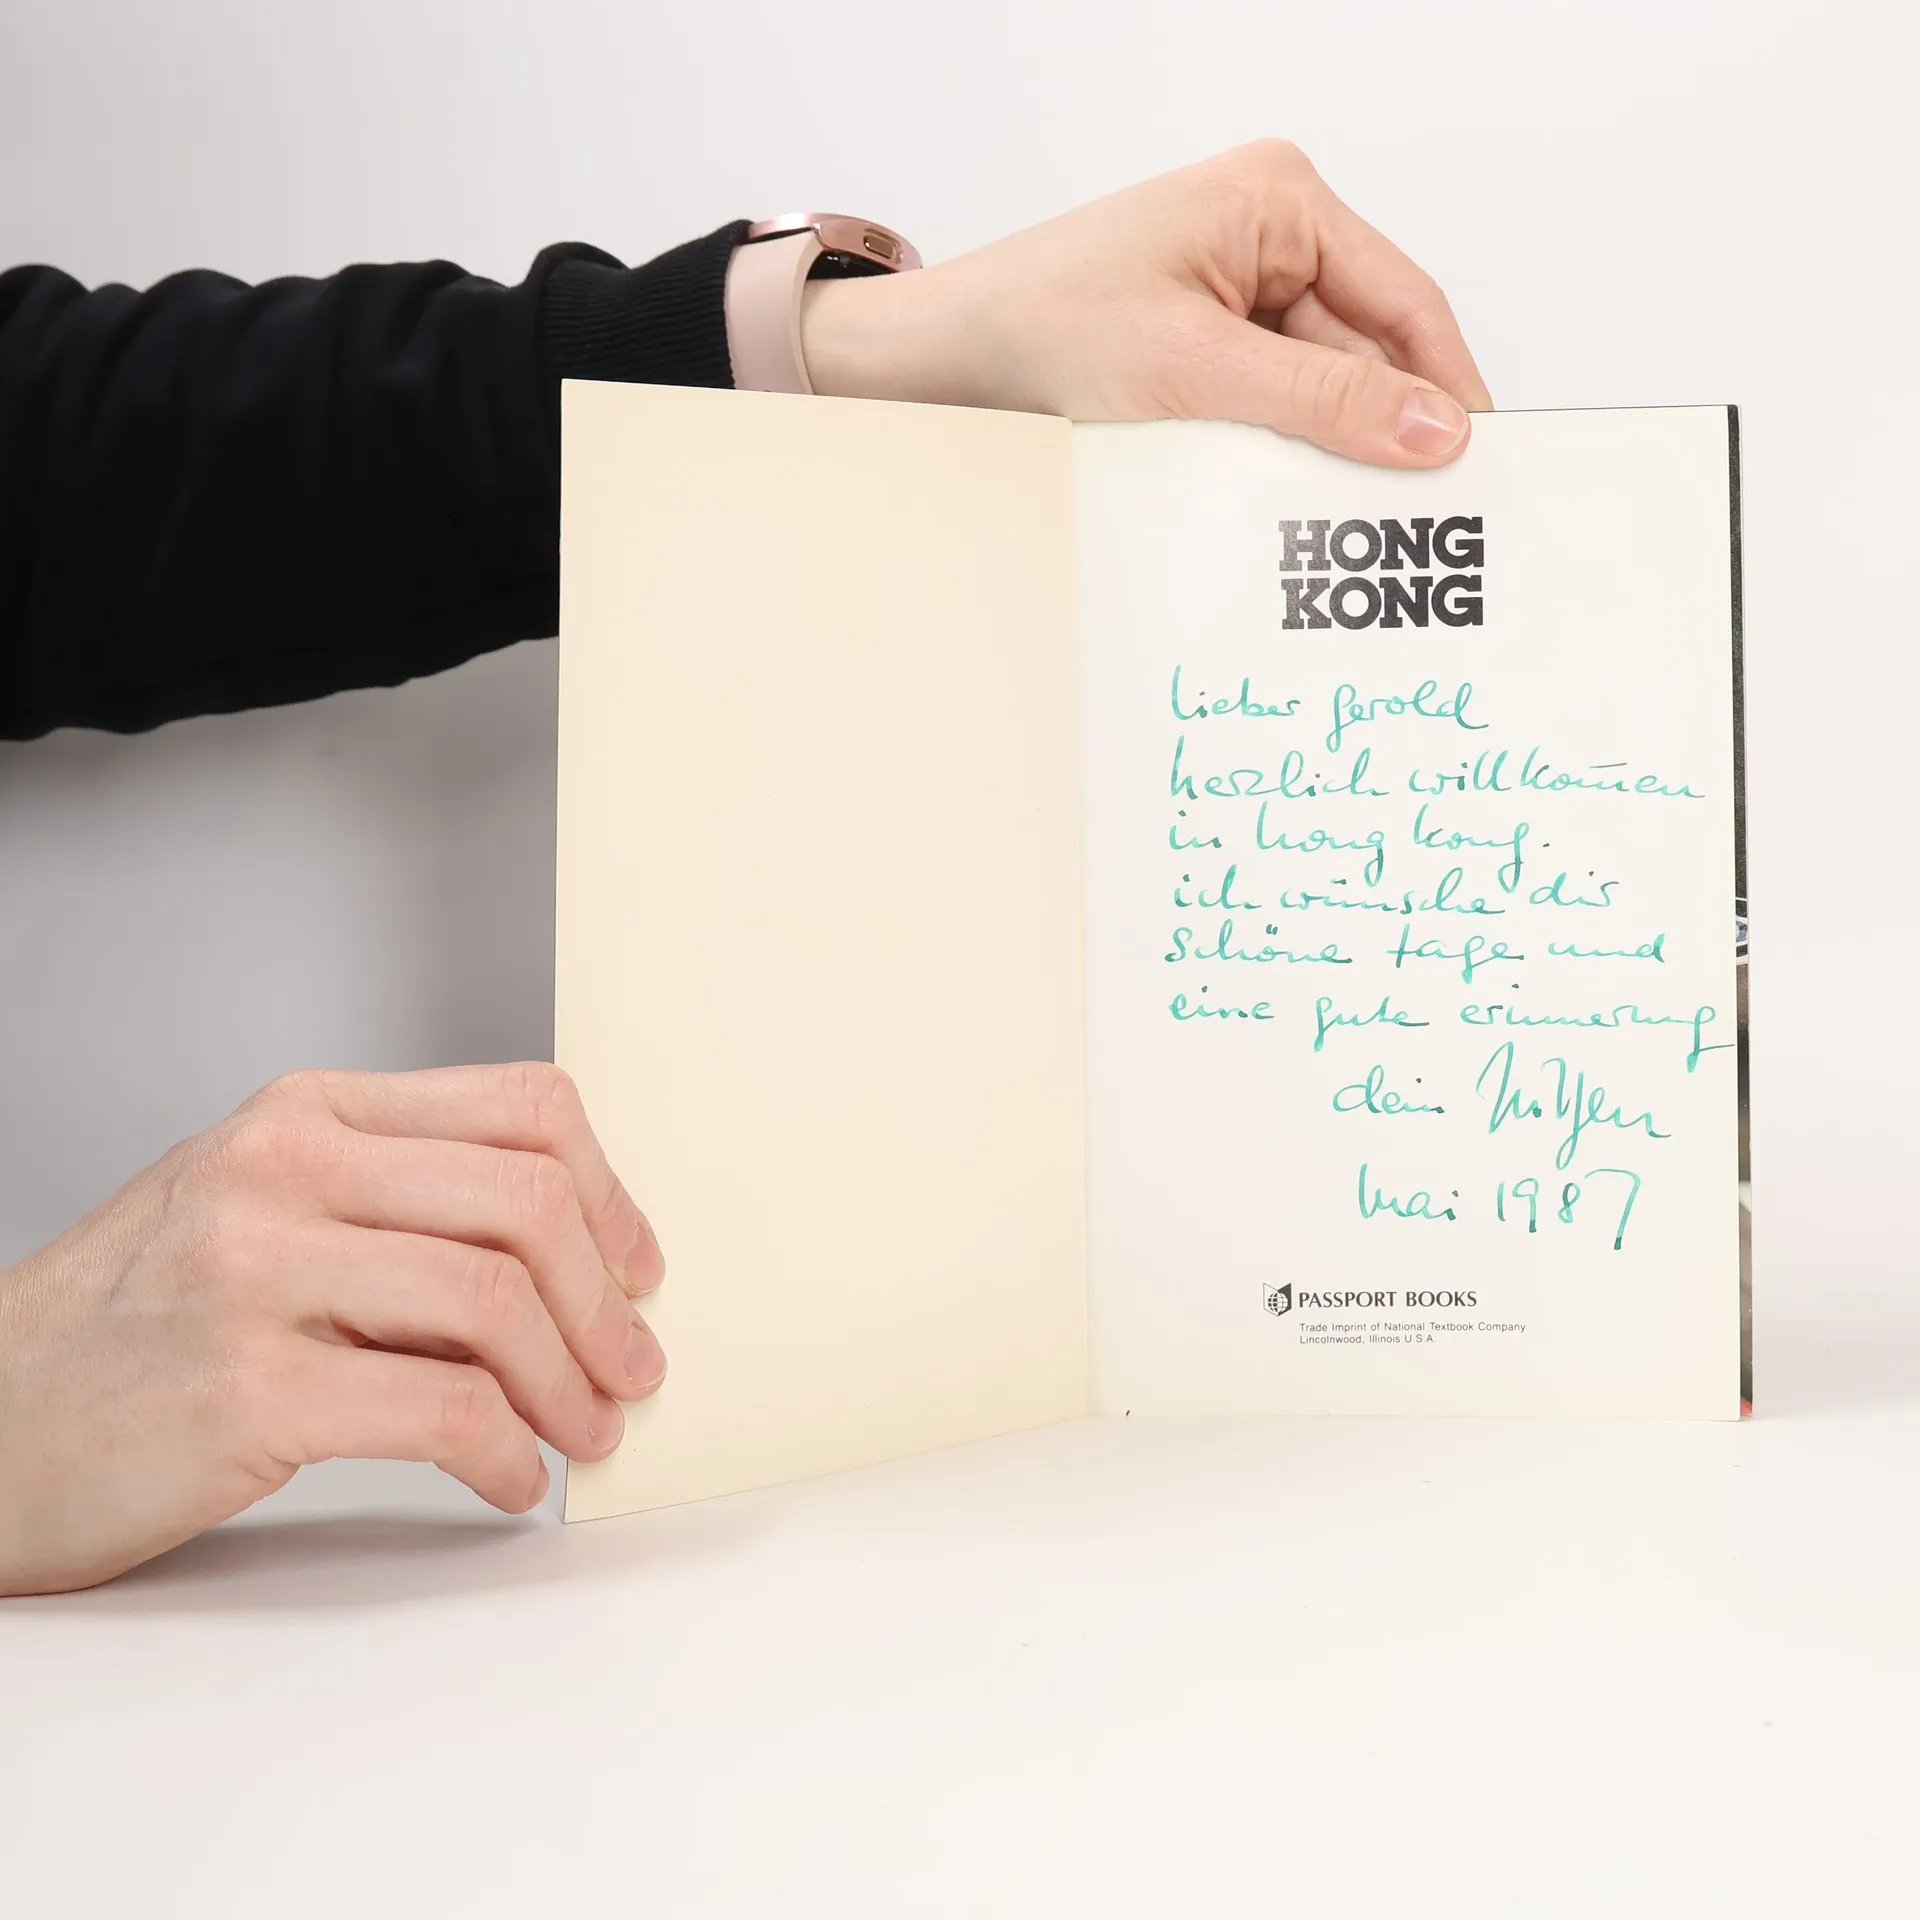 HONG
KONG
lieber gerold
herzlich willkom̅en
in hong kong.
ich wünsche dir
schöne tage und
eine gute erinnerung
dein
mai 1987
PASSPORT BOOKS
Trade Imprint of National Textbook Company
Lincolnwood, Illinois U.S.A.